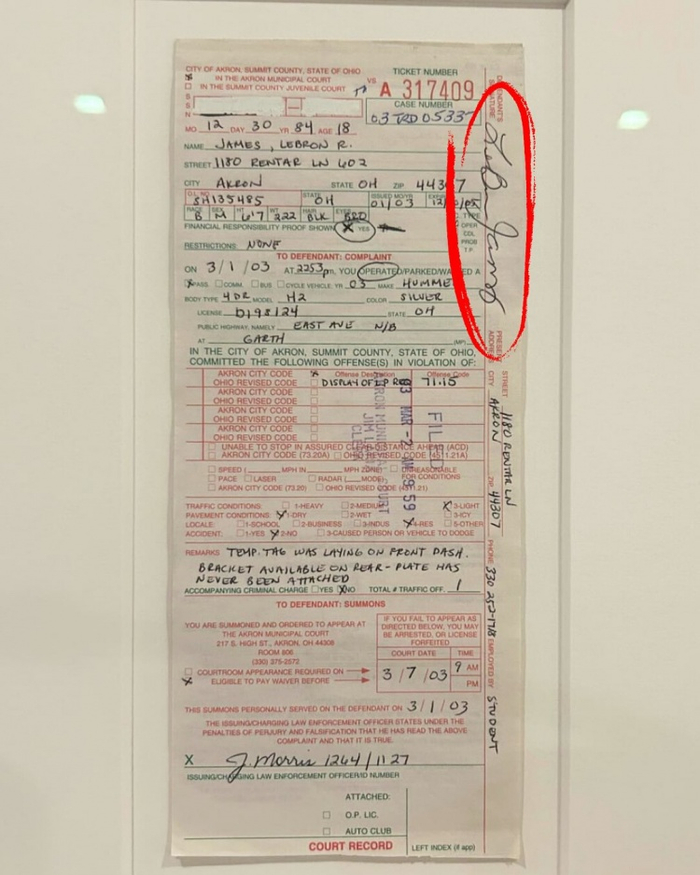 CITY OF AKRON, SUMMIT COUNTY, STATE OF OHIO
IN THE AKRON MUNICIPAL COURT
IN THE SUMMIT COUNTY JUVENILE COURT
VS
TICKET NUMBER
A 317409
CASE NUMBER
S
S
N
MO. 12 DAY 30 YR 84 AGE 18
NAME JAMES, LEBRON R.
STREET 1180 RENTAR LN 602
CITY AKRON STATE OH ZIP 44307
O.L. NO. STATE ISSUED MO/YR
SH135485 OH 01/03
RACE SEX HT WT HAIR EYES
B M 6'7 222 BLK BRO
TYPE
OPER
CDL
PROB
T P
FINANCIAL RESPONSIBILITY PROOF SHOWN X YES
RESTRICTIONS: NONE
TO DEFENDANT: COMPLAINT
ON 3/1/03 AT 2253 pm, YOU OPERATED/PARKED/ A
PASS. COMM. BUS CYCLE VEHICLE: YR 03 MAKE HUMME
BODY TYPE 4DR MODEL H2 COLOR SILVER
LICENSE STATE OH
PUBLIC HIGHWAY, NAMELY EAST AVE N/B
AT GARTH (MP)
IN THE CITY OF AKRON, SUMMIT COUNTY, STATE OF OHIO,
COMMITTED THE FOLLOWING OFFENSE(S) IN VIOLATION OF:
AKRON CITY CODE Offense Description Offense Code
OHIO REVISED CODE DISPLAY OF LP 71.15
AKRON CITY CODE
OHIO REVISED CODE
AKRON CITY CODE
OHIO REVISED CODE
AKRON CITY CODE
OHIO REVISED CODE
UNABLE TO STOP IN ASSURED CLEAR DISTANCE AHEAD (ACD)
AKRON CITY CODE (73.20A) OHIO REVISED CODE (4511.21A)
SPEED ( MPH IN MPH ZONE) UNREASONABLE
PACE LASER RADAR ( MODEL FOR CONDITIONS
AKRON CITY CODE (73.20) OHIO REVISED CODE (4511.21)
FILED
03 MAR -2 AM 9:59
AKRON MUNICIPAL COURT
JIM
CLERK
TRAFFIC CONDITIONS: 1-HEAVY 2-MEDIUM X 3-LIGHT
PAVEMENT CONDITIONS: X 1-DRY 2-WET 3-ICY
LOCALE: 1-SCHOOL 2-BUSINESS 3-INDUS X 4-RES 5-OTHER
ACCIDENT: 1-YES X 2-NO 3-CAUSED PERSON OR VEHICLE TO DODGE
REMARKS TEMP. TAG WAS LAYING ON FRONT DASH.
BRACKET AVAILABLE ON REAR-PLATE HAS
NEVER BEEN ATTACHED
ACCOMPANYING CRIMINAL CHARGE YES X NO TOTAL # TRAFFIC OFF. 1
TO DEFENDANT: SUMMONS
YOU ARE SUMMONED AND ORDERED TO APPEAR AT
THE AKRON MUNICIPAL COURT
217 S. HIGH ST., AKRON, OH 44308
ROOM 806
(330) 375-2572
COURTROOM APPEARANCE REQUIRED ON
X ELIGIBLE TO PAY WAIVER BEFORE
IF YOU FAIL TO APPEAR AS
DIRECTED BELOW, YOU MAY
BE ARRESTED, OR LICENSE
FORFEITED
COURT DATE TIME
3/7/03 9 AM
PM
THIS SUMMONS PERSONALLY SERVED ON THE DEFENDANT ON 3/1/03
THE ISSUING/CHARGING LAW ENFORCEMENT OFFICER STATES UNDER THE
PENALTIES OF PERJURY AND FALSIFICATION THAT HE HAS READ THE ABOVE
COMPLAINT AND THAT IT IS TRUE.
X J. Morris 1264/1127
ISSUING/CHARGING LAW ENFORCEMENT OFFICER/ID NUMBER
ATTACHED:
O.P. LIC.
AUTO CLUB
COURT RECORD
LEFT INDEX (if app)
DEFENDANT'S SIGNATURE LeBron James
PRESENT ADDRESS
STREET 1180 RENTAR LN
CITY AKRON ZIP 44307
PHONE EMPLOYED BY STUDENT